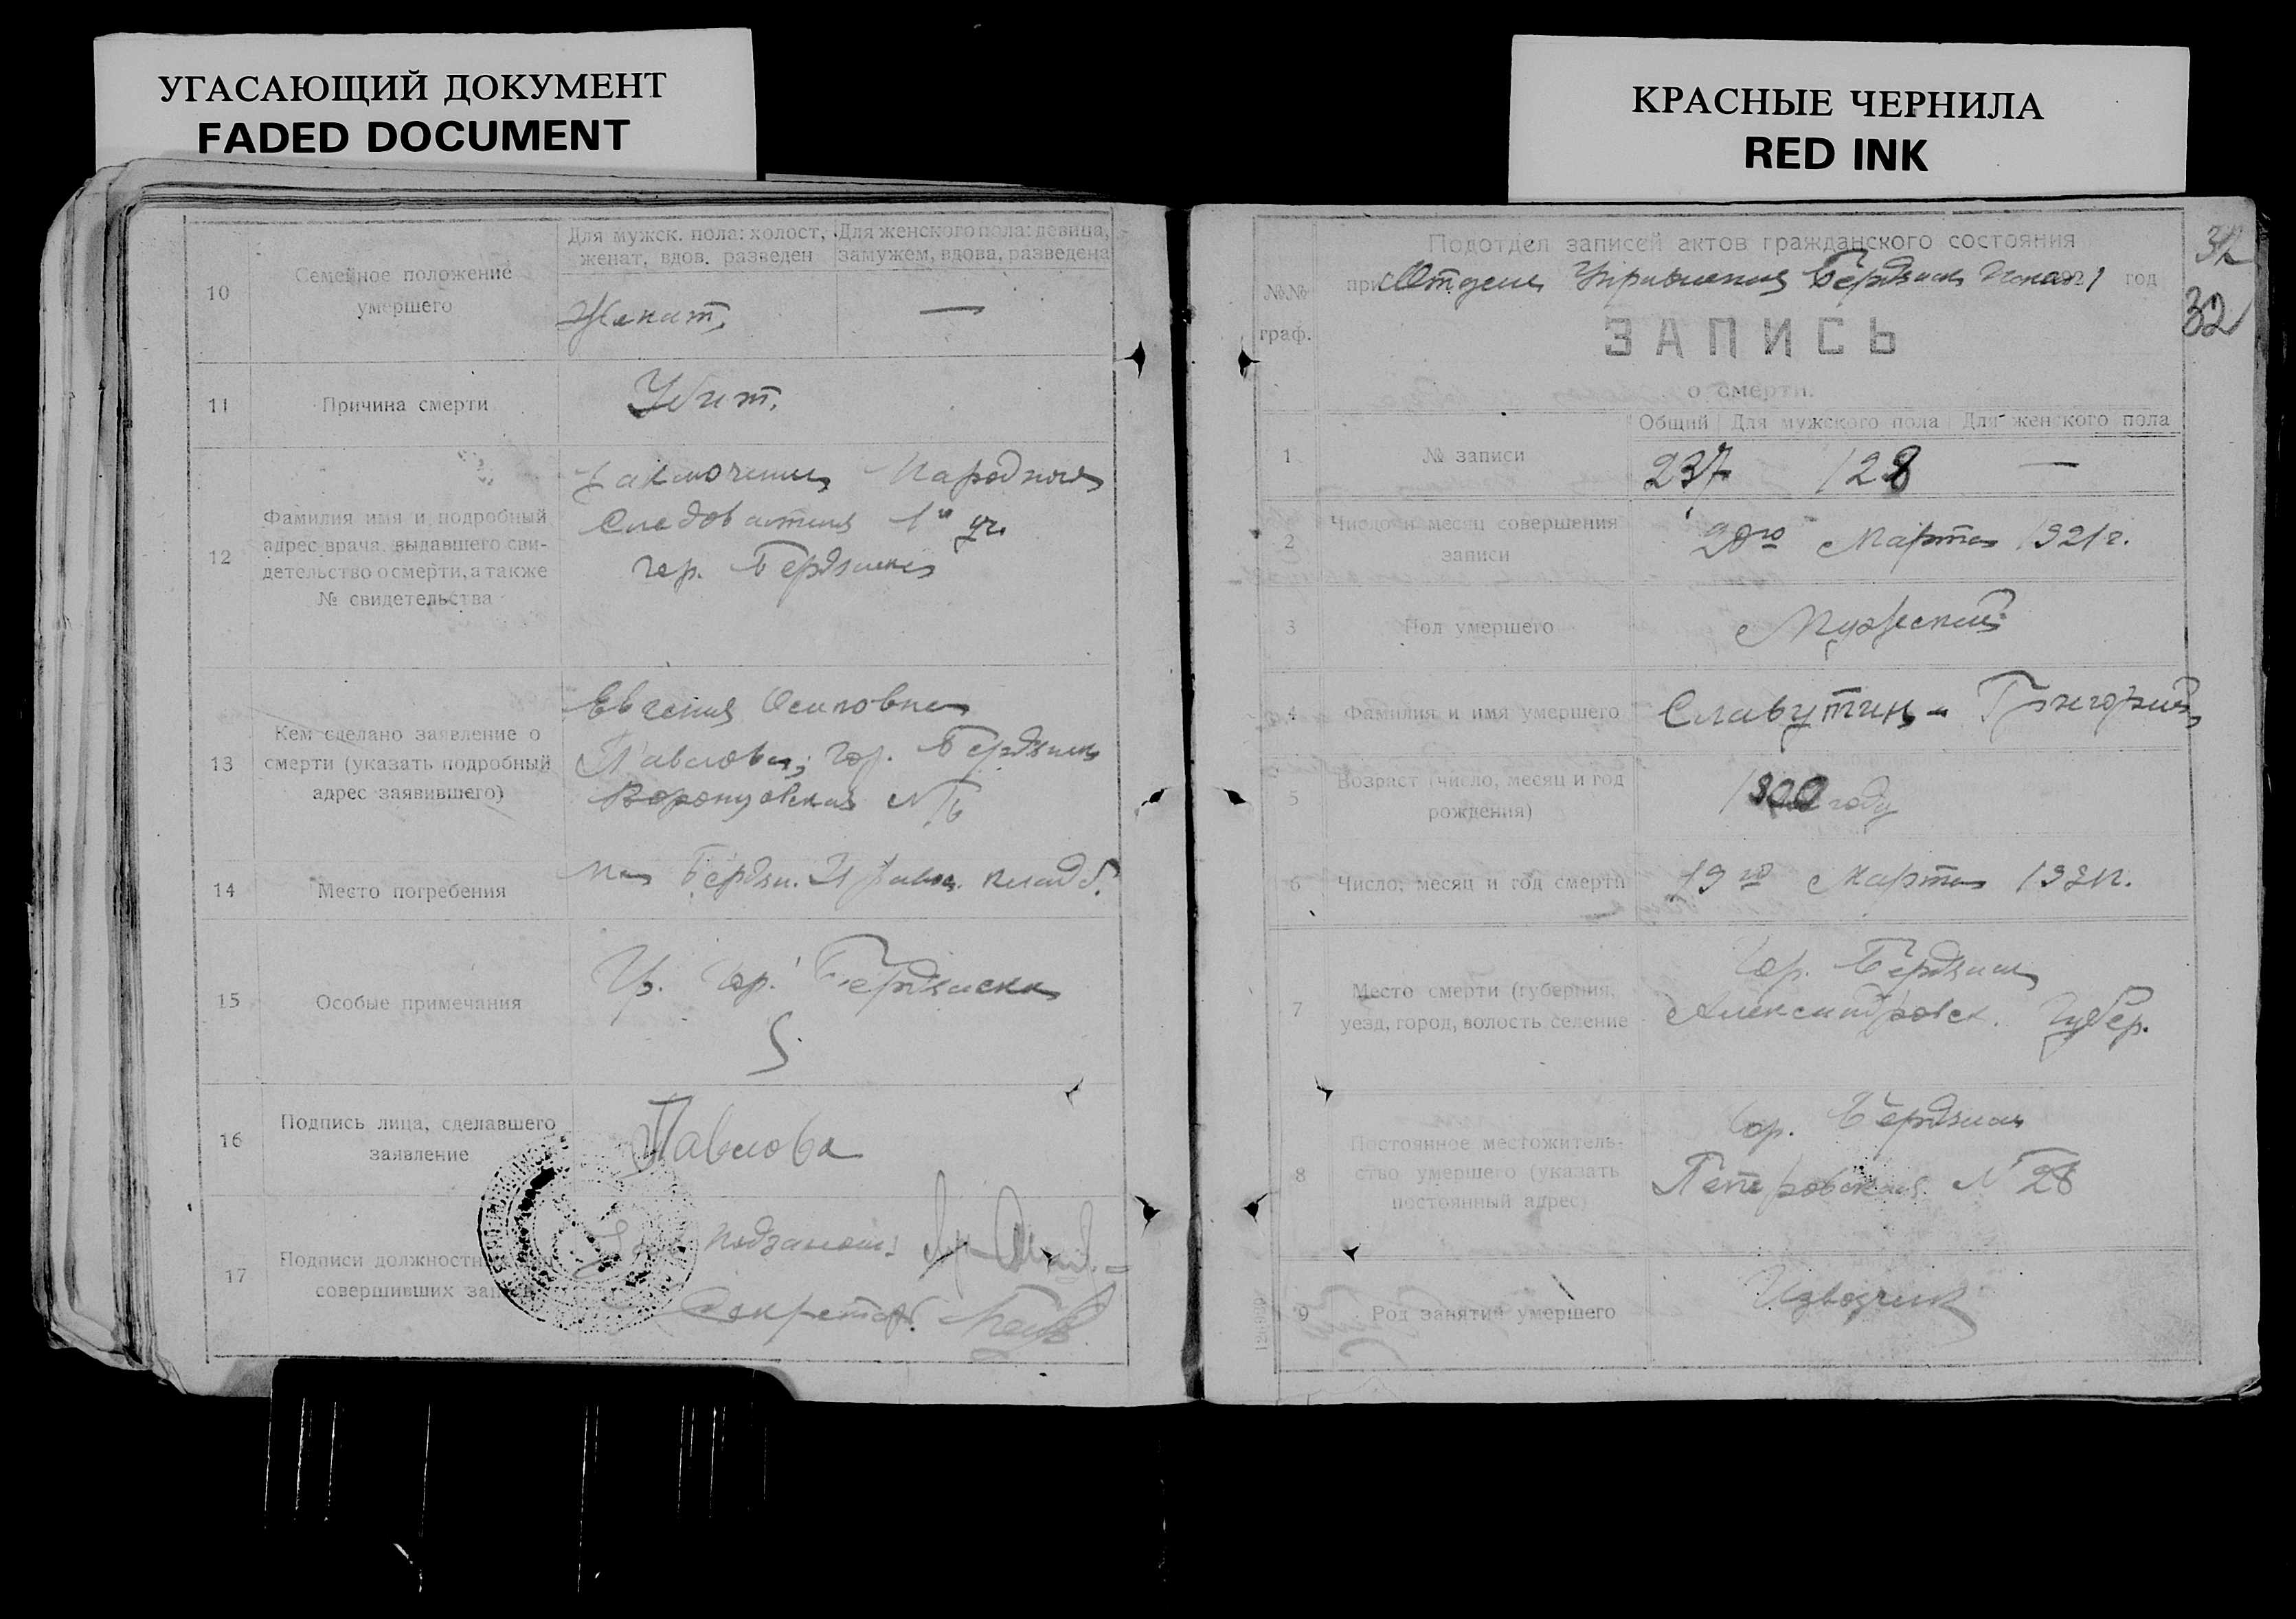 УГАСАЮЩИЙ ДОКУМЕНТ
FADED DOCUMENT
КРАСНЫЕ ЧЕРНИЛА
RED INK
10
Семейное положение
умершего
Для мужск. пола: холост,
женат, вдов. разведен
Для женского пола: девица,
замужем, вдова, разведена
Женат.
—
11
Причина смерти
Убит.
12
Фамилия имя и подробный
адрес врача, выдавшего сви-
детельство о смерти, а также
№ свидетельства
Заключение Народного
Следователя 1го уч.
гор. Бердянска
13
Кем сделано заявление о
смерти (указать подробный
адрес заявившего)
Евгения Осиповна
Павлова, гор. Бердянск
Воронцовская №
14
Место погребения
на Бердян. кладб.
15
Особые примечания
Гр. гор. Бердянска
16
Подпись лица, сделавшего
заявление
Павлова
17
Подписи должностн
совершивших зап
Секретарь
32
32
№№
граф.
Подотдел записей актов гражданского состояния
при Отделе Управления Бердянск 1 год
ЗАПИСЬ
о смерти.
1
№ записи
Общий Для мужского пола Для женского пола
237 128 —
2
Число и месяц совершения
записи
28го Марта 1921г.
3
Пол умершего
Мужской
4
Фамилия и имя умершего
Славутин - Григорий
5
Возраст (число, месяц и год
рождения)
году
6
Число, месяц и год смерти
19го Марта 1921г.
7
Место смерти (губерния,
уезд, город, волость, селение
Гор. Бердянск
Александровск. Губер.
8
Постоянное местожитель-
ство умершего (указать
постоянный адрес)
Гор. Бердянск
Петровская №28
9
Род занятий умершего
Извозчик